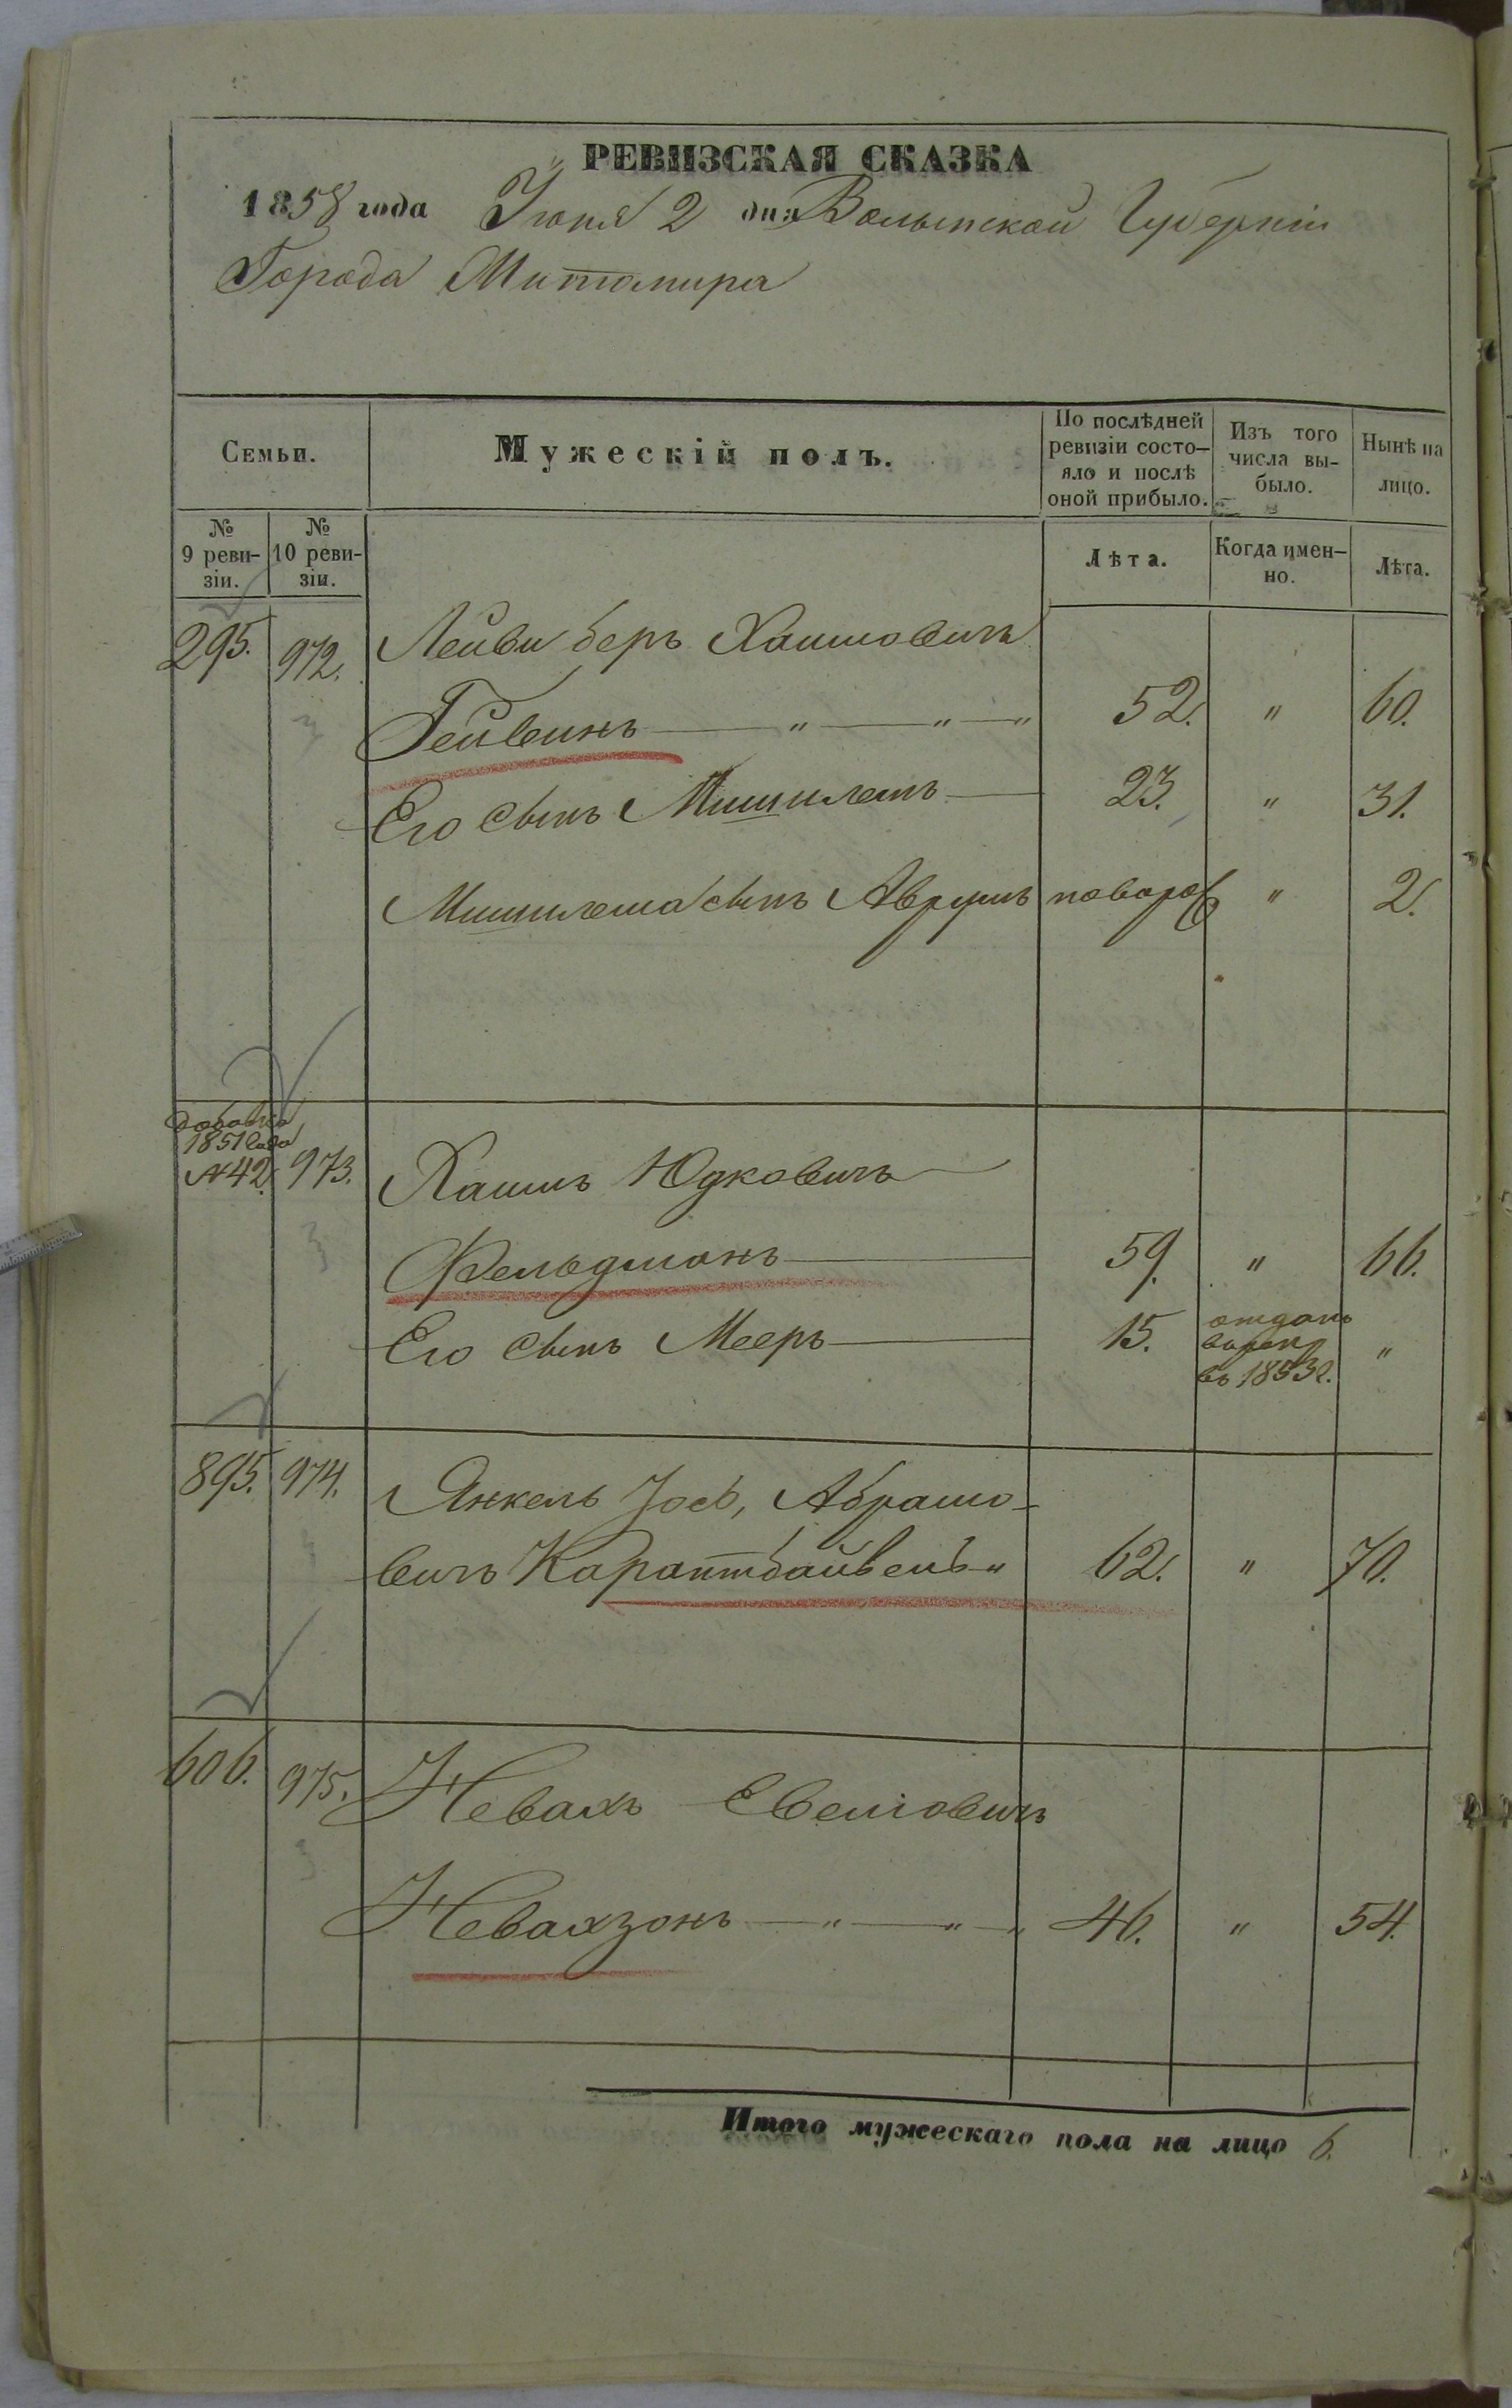 РЕВИЗСКАЯ СКАЗКА
1858 года Іюня 2 дня Волынской Губерніи
Города Житомира
Семьи.
Мужескій полъ.
По послѣдней ревизіи состо-яло и послѣ оной прибыло.
Изъ того числа вы-было.
Нынѣ на лицо.
№ 9 реви-зіи.
№ 10 реви-зіи.
Лѣта.
Когда имен-но.
Лѣта.
295. 972. Лейви беръ Хаимовичъ
Гейвинъ — " — " — " 52. " 60.
Его сынъ Мишилемъ — 23. " 31.
Мишилема сынъ Аврумъ новорож " 2.
1851 года
№ 42. 973. Хаимъ Юдковичъ —
Фельдманъ — 59. " 66.
Его сынъ Мееръ — 15. отданъ
въ рек
въ 1853 г. "
895. 974. Янкель Іось, Абрамо-
вичъ Карантбайвель " 62. " 70.
606. 975. Невахъ Евелювичъ
Невахзонъ — " — " — " 46. " 54.
Итого мужескаго пола на лицо 6.